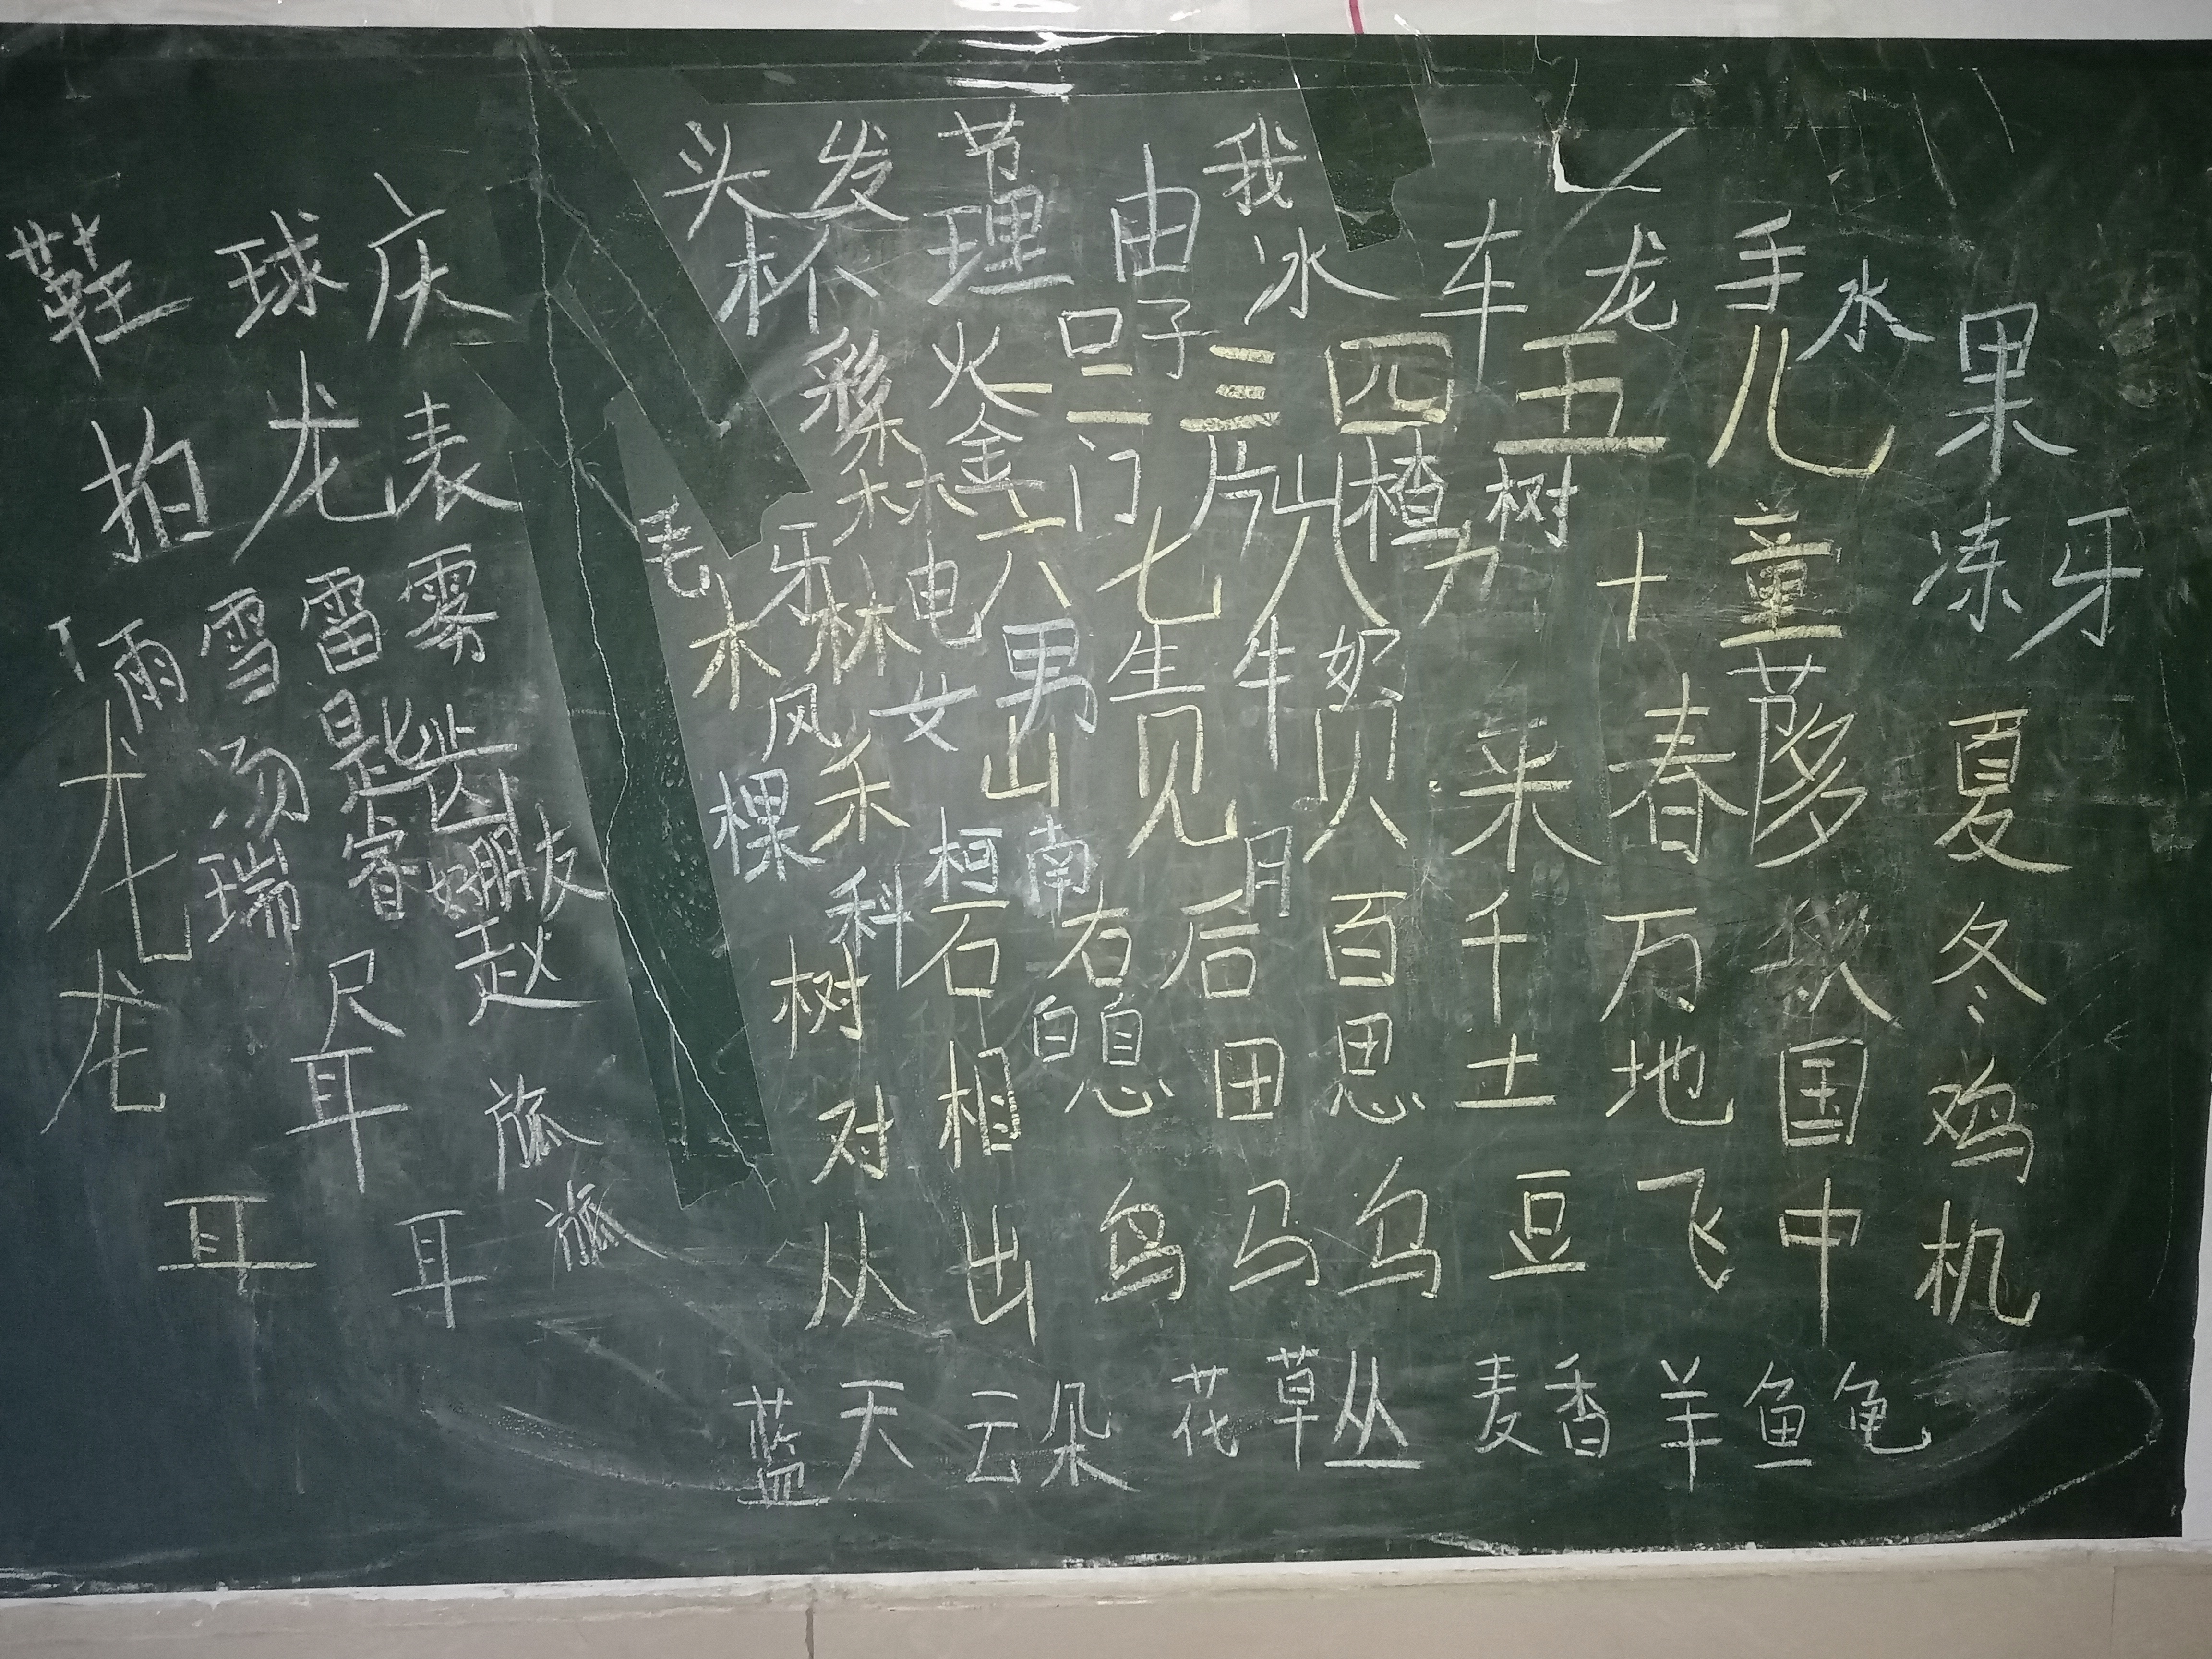 头 发 节 我
鞋 球 庆
杯 理 由 冰 车 龙 手 水 果
彩 火 口 子
一 二 三 四 五 儿
拍 龙 表
金 门 片 山 楂 树
毛 牙 电 六 七 八 力 十 童 冻 牙
雨 雪 雷 雾
木 林 女 男 生 牛
风 禾 山 见 贝 来 春 夏
龙 汤 是 齿
棵 柯 南 月
瑞 睿 好 朋 友
科 石 右 后 百 千 万 冬
龙 尺 赵
树 白 息
对 相 田 思 土 地 国 鸡
耳
耳 耳
从 出 鸟 马 乌 豆 飞 中 机
蓝 天 云 朵 花 草 丛 麦 香 羊 鱼 龟